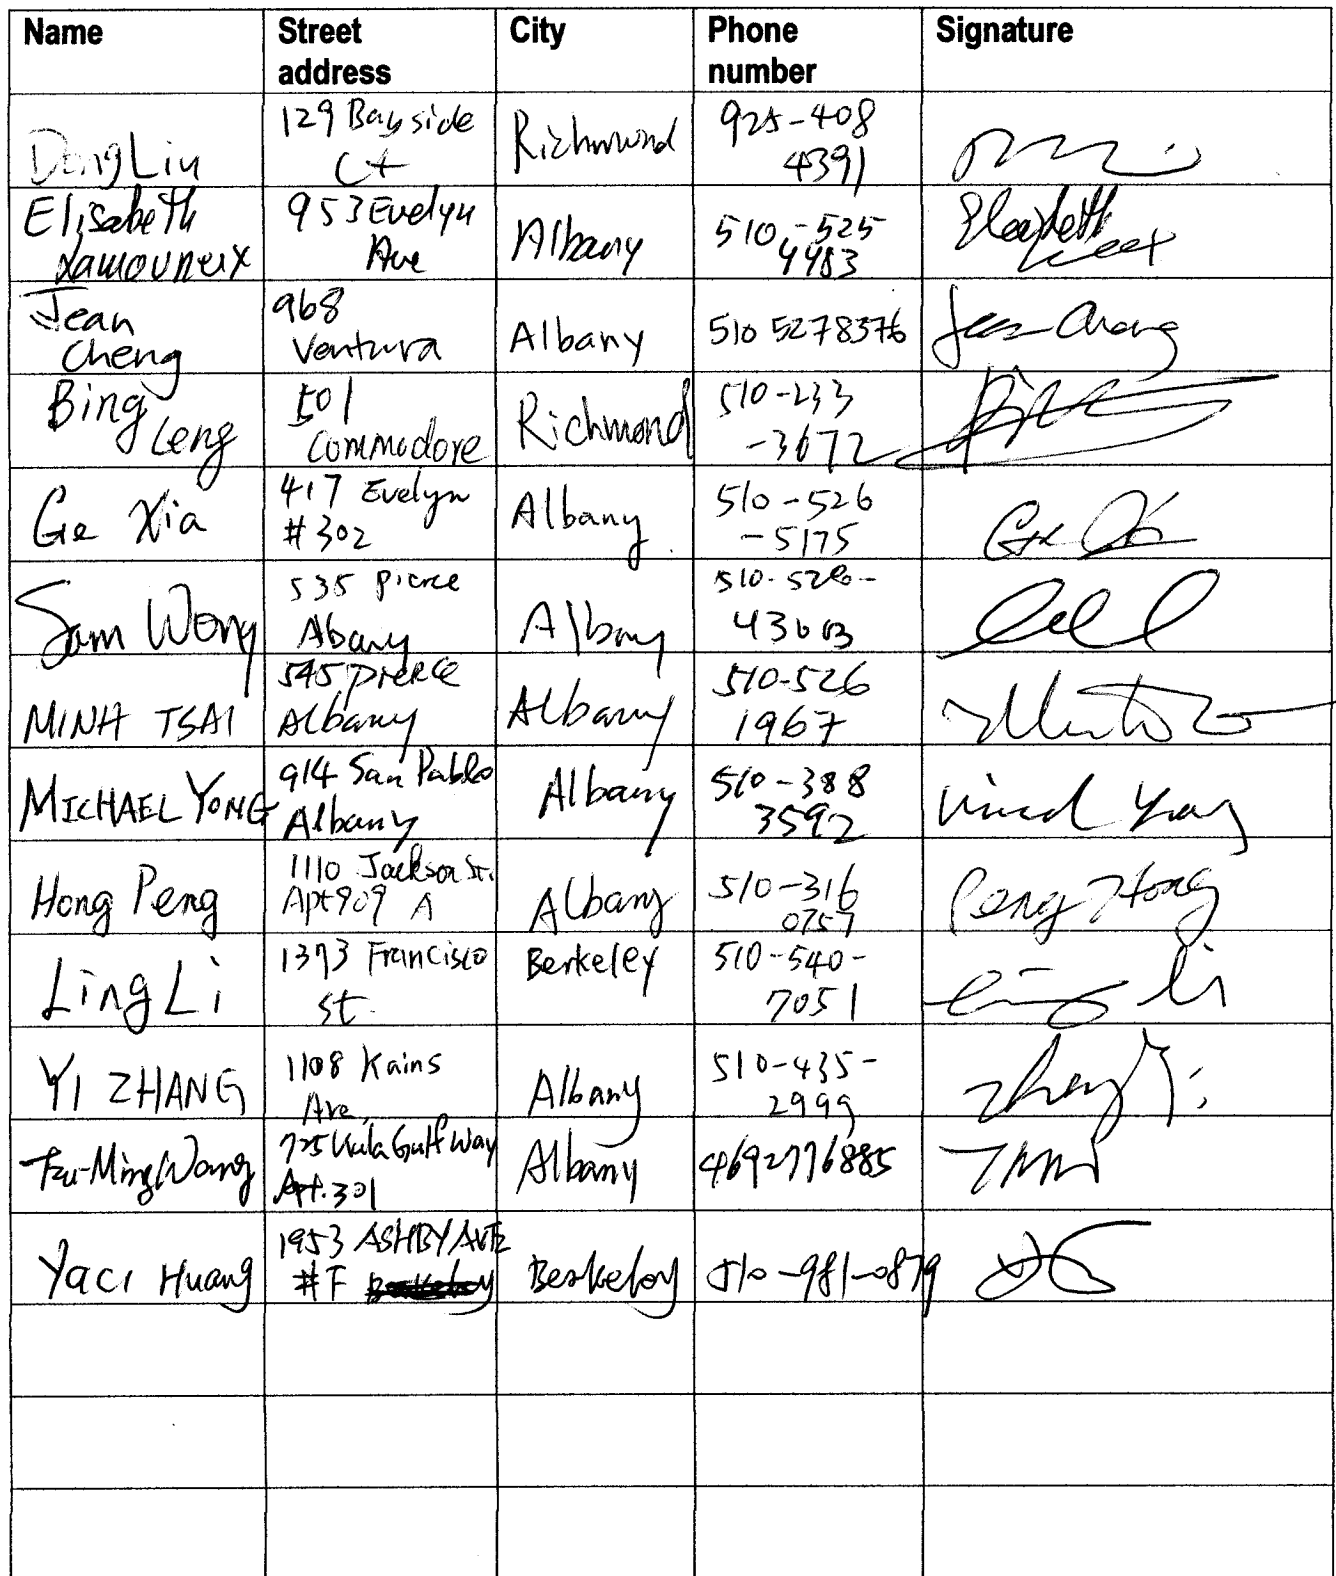 Name
Street address
City
Phone number
Signature
Dong Liu
129 Bayside Ct
Richmond
925-408 4391
Elisabeth Lamoureux
953 Evelyn Ave
Albany
510-525 4483
Jean Cheng
968 Ventura
Albany
510 5278376
Jean Cheng
Bing Leng
501 Commodore
Richmond
510-233 -3672
Ge Xia
417 Evelyn #302
Albany
510-526 -5175
Ge Xia
Sam Wong
535 Pierce Abany
Albany
510-526-
MINH TSAI
545 pierce Albany
Albany
510-526 1967
MICHAEL YONG
914 San Pablo Albany
Albany
510-388 3592
Hong Peng
1110 Jackson St. Apt 909 A
Albany
510-316 0757
Peng Hong
Ling Li
1393 Francisco St.
Berkeley
510-540- 7051
Ling Li
YI ZHANG
1108 Kains Ave,
Albany
510-435- 2999
Zhang Yi
Tzu-Ming Wang
725 Kula Gulf Way Apt. 301
Albany
4692776885
Yaci Huang
1953 ASHBY AVE #F
Berkeley
510-981-0879